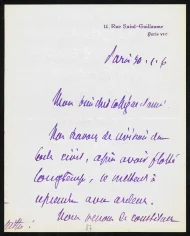 14, Rue Saint-Guillaume
Paris VIIe
Paris 30-1-6
Mon bien cher collègue et ami.
Nos travaux de révision du
Code civil, après avoir flotté
longtemps, se mettent à
reprendre avec ardeur.
Nous venons de constituer